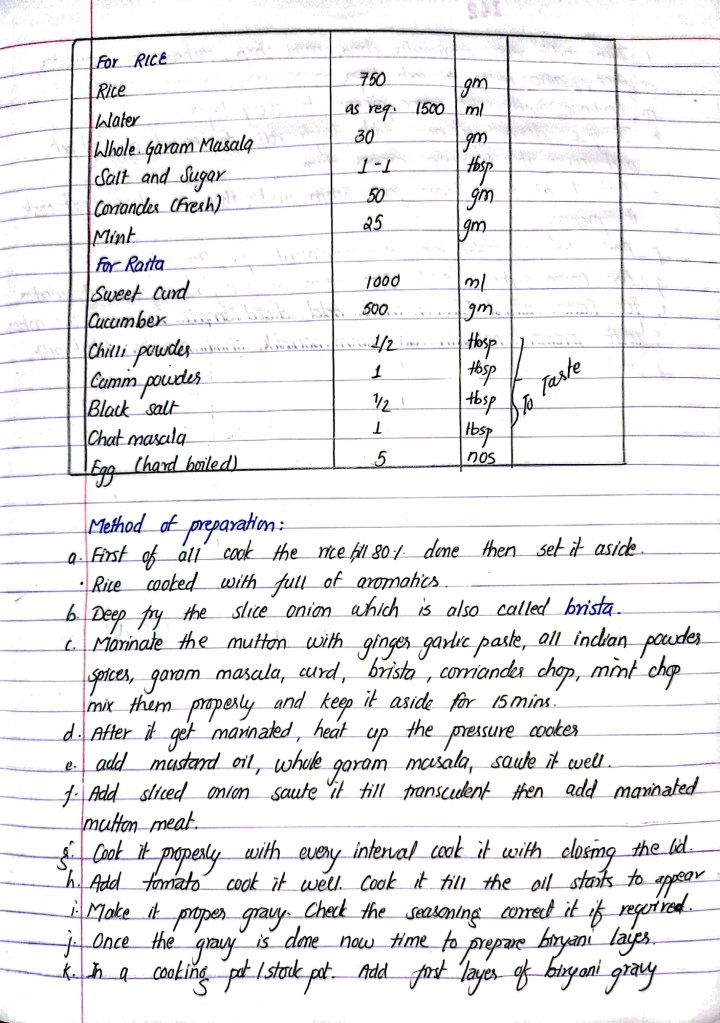 For RICE
Rice 750 gm
Water as req. 1500 ml
Whole Garam Masala 30 gm
Salt and Sugar 1-1 tbsp
Corriander (Fresh) 50 gm
Mint 25 gm
For Raita
Sweet Curd 1000 ml
Cucumber 500 gm
Chilli powder 1/2 tbsp
Cumin powder 1 tbsp
Black salt 1/2 tbsp
To Taste
Chat masala 1 tbsp
Egg (hard boiled) 5 nos
Method of preparation:
a. First of all cook the rice till 80% done then set it aside.
· Rice cooked with full of aromatics.
b. Deep fry the slice onion which is also called brista.
c. Marinate the mutton with ginger garlic paste, all indian powder
spices, garam masala, curd, brista, corriander chop, mint chop
mix them properly and keep it aside for 15 mins.
d. After it get marinated, heat up the pressure cooker
e. add mustard oil, whole garam masala, saute it well.
f. Add sliced onion saute it till transculent then add marinated
mutton meat.
g. Cook it properly with every interval cook it with closing the lid.
h. Add tomato cook it well. Cook it till the oil starts to appear
i. Make it proper gravy. Check the seasoning correct it if required.
j. Once the gravy is done now time to prepare biryani layer.
k. In a cooking pot / stock pot. Add first layer of biryani gravy